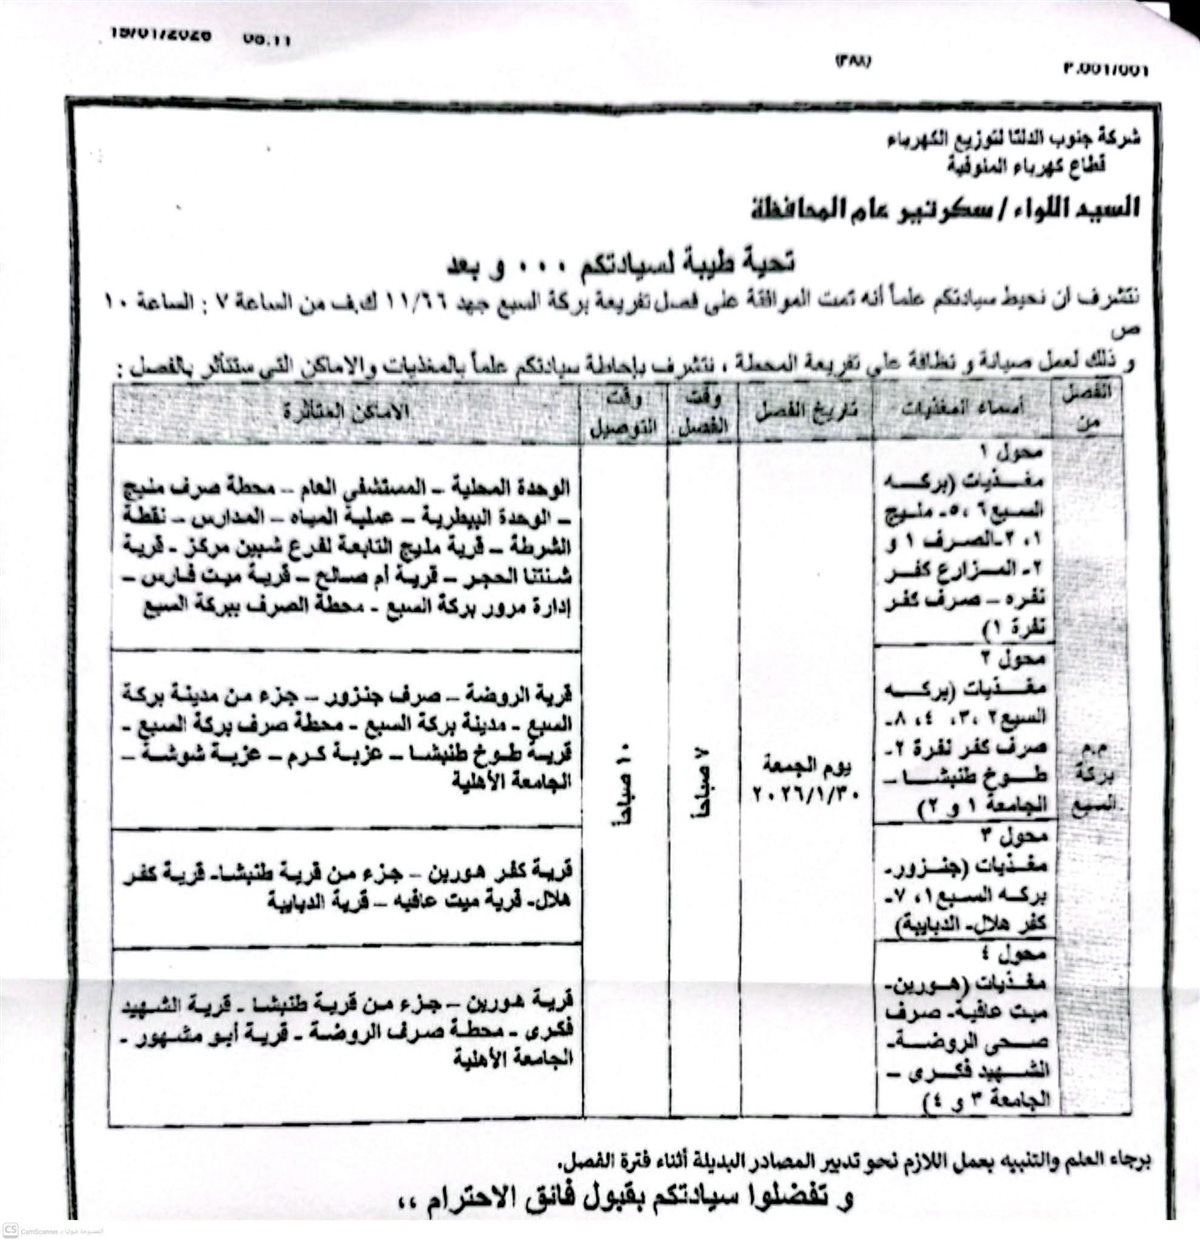 19/01/2026 08:11
(FAX)
P.001/001
شركة جنوب الدلتا لتوزيع الكهرباء
قطاع كهرباء المنوفية
السيد اللواء / سكرتير عام المحافظة
تحية طيبة لسيادتكم ٠٠٠ و بعد
نتشرف ان نحيط سيادتكم علماً أنه تمت الموافقة على فصل تفريعة بركة السبع جهد ١١/٦٦ ك.ف من الساعة ٧ : الساعة ١٠
ص
و ذلك لعمل صيانة و نظافة على تفريعة المحطة ، نتشرف بإحاطة سيادتكم علماً بالمغذيات والاماكن التي ستتأثر بالفصل :
الفصل من
أسماء المغذيات
تاريخ الفصل
وقت الفصل
وقت التوصيل
الاماكن المتأثرة
م.م
بركة
السبع
محول ١
مغذيات (بركه
السبع٦ ،٥- مليج
١، ٢-الصرف ١ و
٢- المزارع كفر
نفره – صرف كفر
نفرة ١)
يوم الجمعة
٢٠٢٦/١/٣٠
٧ صباحاً
١٠ صباحاً
الوحدة المحلية – المستشفى العام – محطة صرف مليج
– الوحدة البيطرية – عملية المياه – المدارس – نقطة
الشرطة – قرية مليج التابعة لفرع شبين مركز - قرية
شنتنا الحجر – قرية أم صالح – قرية ميت فارس –
إدارة مرور بركة السبع - محطة الصرف ببركة السبع
محول ٢
مغذيات (بركه
السبع٢ ،٣، ٤، ٨-
صرف كفر نفرة ٢-
طوخ طنبشا –
الجامعة ١ و ٢)
قرية الروضة – صرف جنزور – جزء من مدينة بركة
السبع - مدينة بركة السبع - محطة صرف بركة السبع -
قرية طوخ طنبشا – عزبة كرم – عزبة شوشة –
الجامعة الأهلية
محول ٣
مغذيات (جنزور-
بركه السبع١، ٧-
كفر هلال- الدبايبة)
قرية كفر هورين – جزء من قرية طنبشا- قرية كفر
هلال- قرية ميت عافيه – قرية الدبايبة
محول ٤
مغذيات (هورين-
ميت عافية- صرف
صحى الروضة-
الشهيد فكرى –
الجامعة ٣ و ٤)
قرية هورين – جزء من قرية طنبشا - قرية الشهيد
فكرى - محطة صرف الروضة - قرية أبو مشهور -
الجامعة الأهلية
برجاء العلم والتنبيه بعمل اللازم نحو تدبير المصادر البديلة أثناء فترة الفصل.
و تفضلوا سيادتكم بقبول فائق الاحترام ،،
CS CamScanner